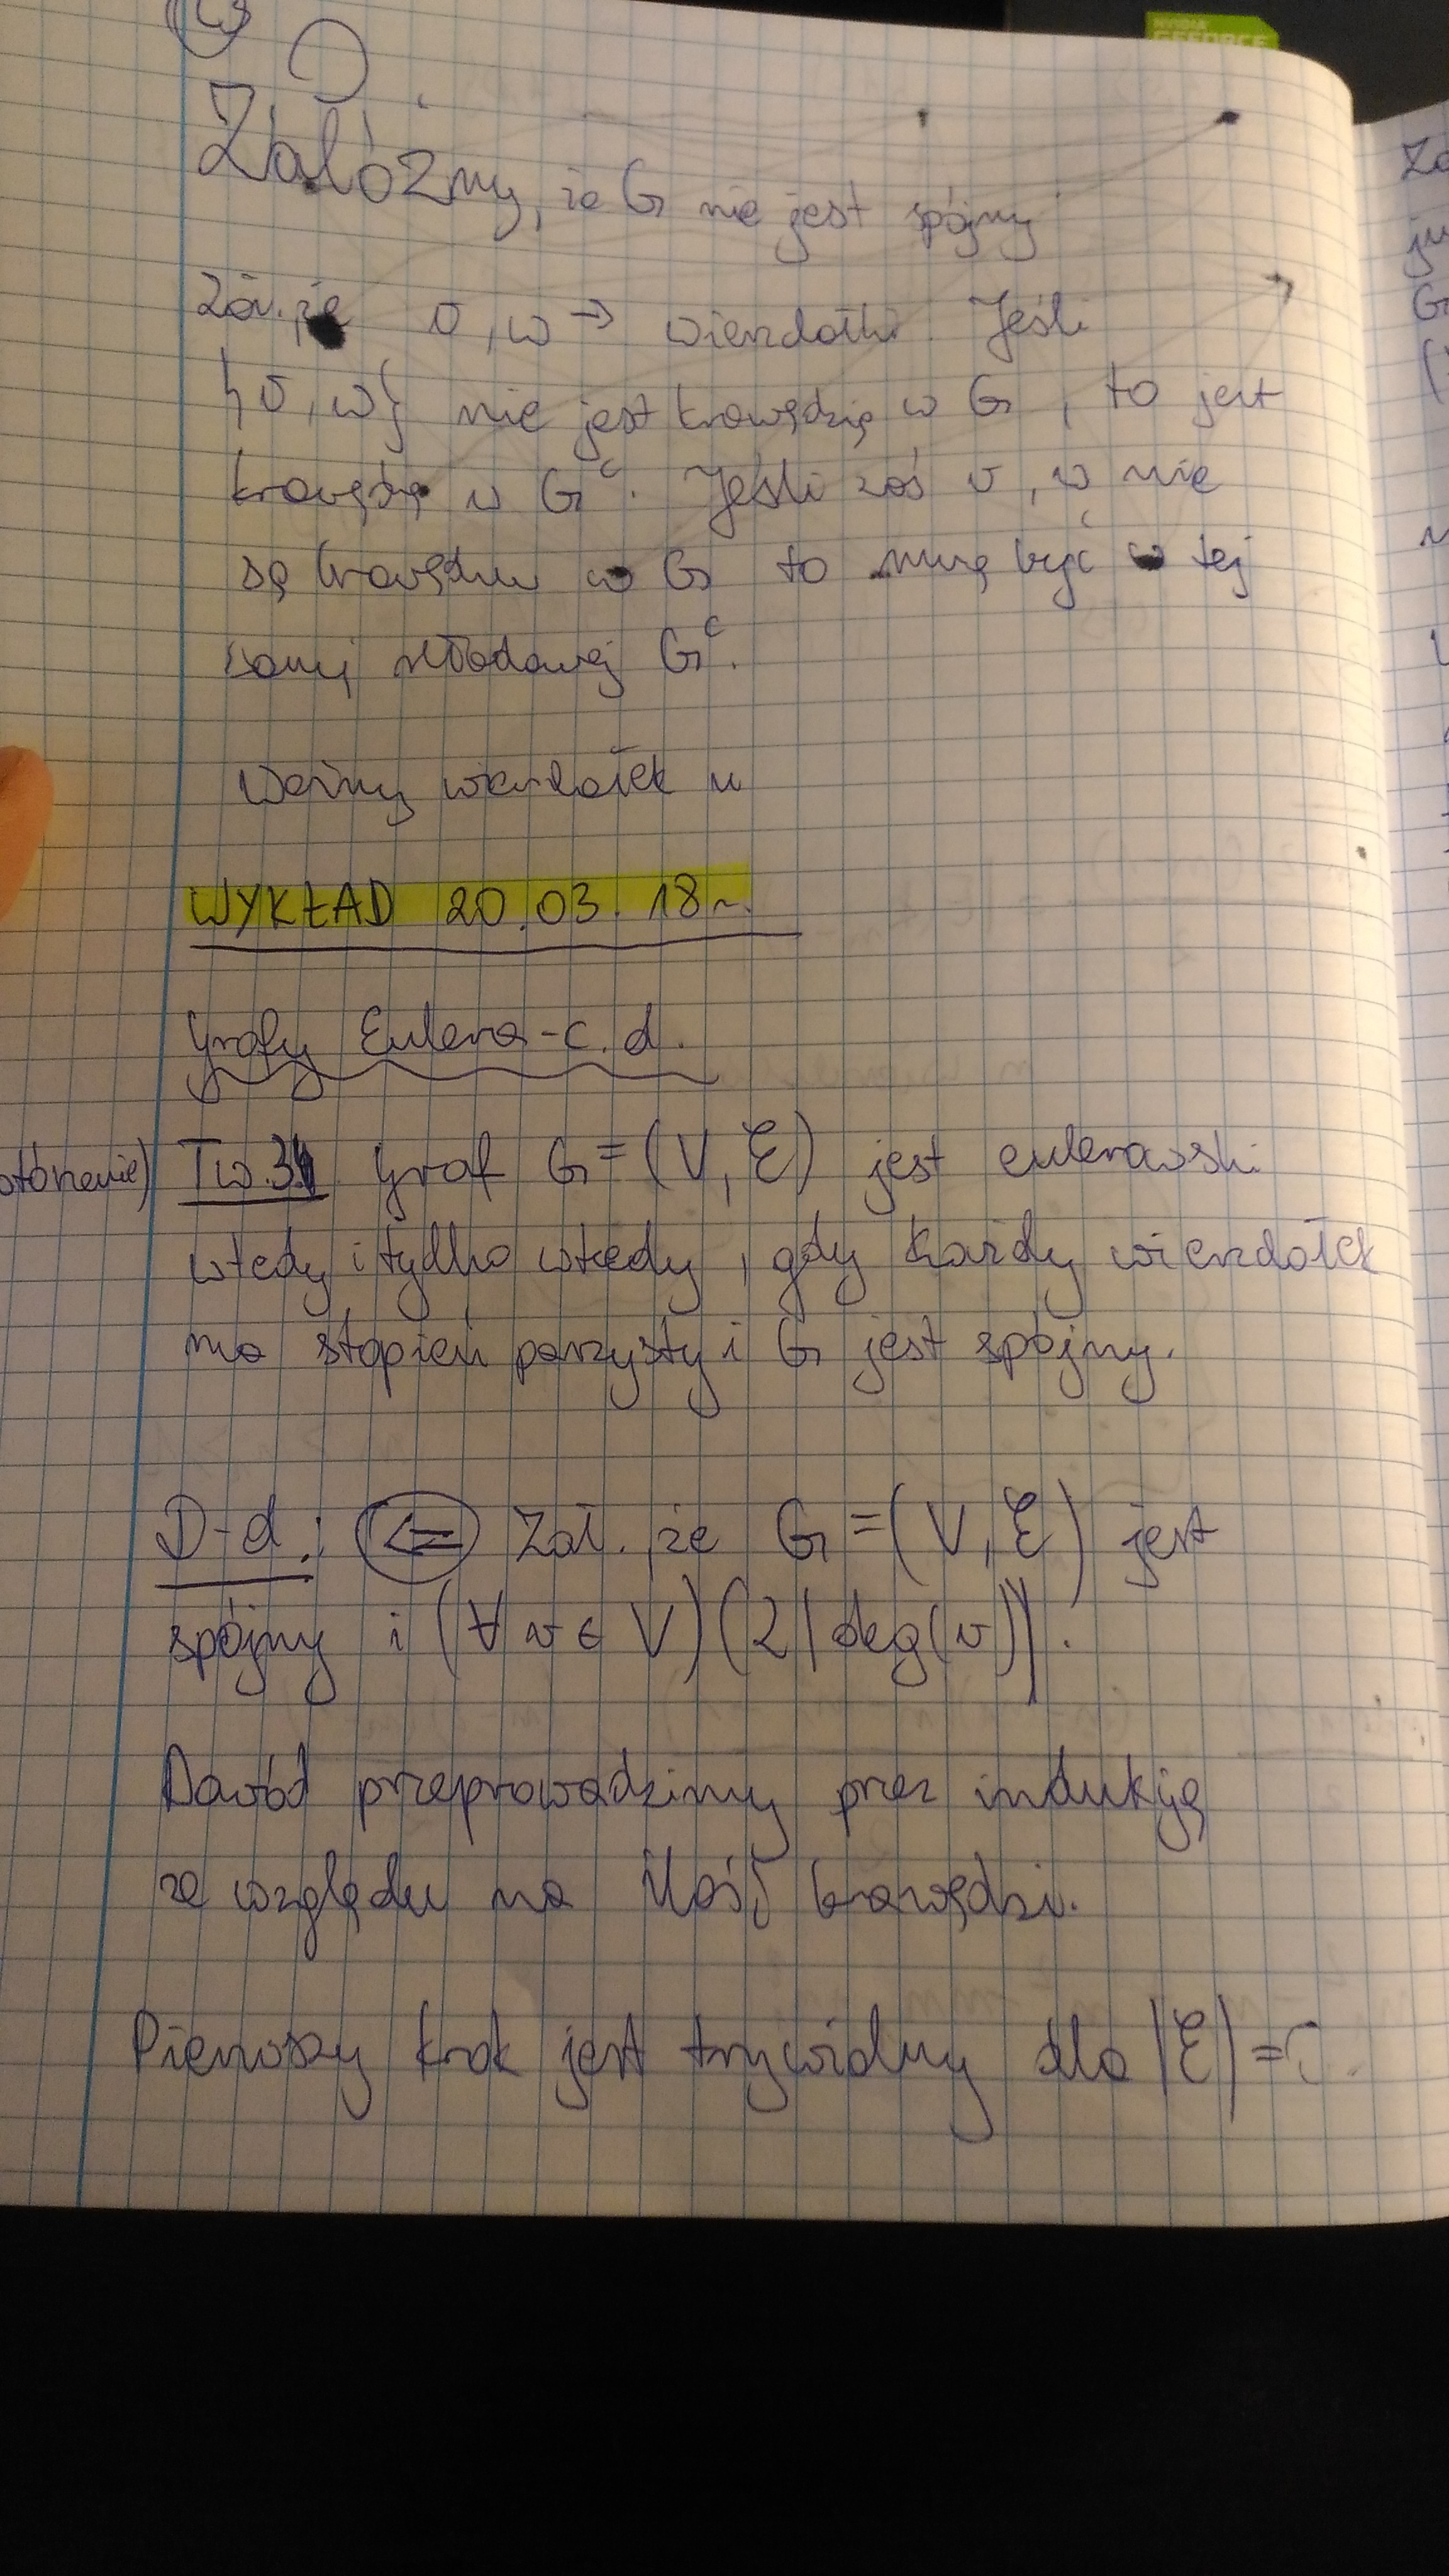 NVIDIA
GEFORCE
Załóżmy, że G nie jest spójny
Zał. że v, w → wierzchołki. Jeśli
{v, w} nie jest krawędzią w G, to jest
krawędzią w G^c. Jeśli zaś v, w nie
są krawędzią w G to muszą być w tej
samej składowej G^c.
Weźmy wierzchołek u
WYKŁAD 20.03.18r.
Grafy Eulera - c.d.
Tw.31 Graf G = (V, E) jest eulerowski
wtedy i tylko wtedy, gdy każdy wierzchołek
ma stopień parzysty i G jest spójny.
D-d.: <= Zał. że G = (V, E) jest
spójny i (∀ v ∈ V)(2 | deg(v)).
Dowód przeprowadzimy przez indukcję
ze względu na ilość krawędzi.
Pierwszy krok jest trywialny dla |E| = 0.